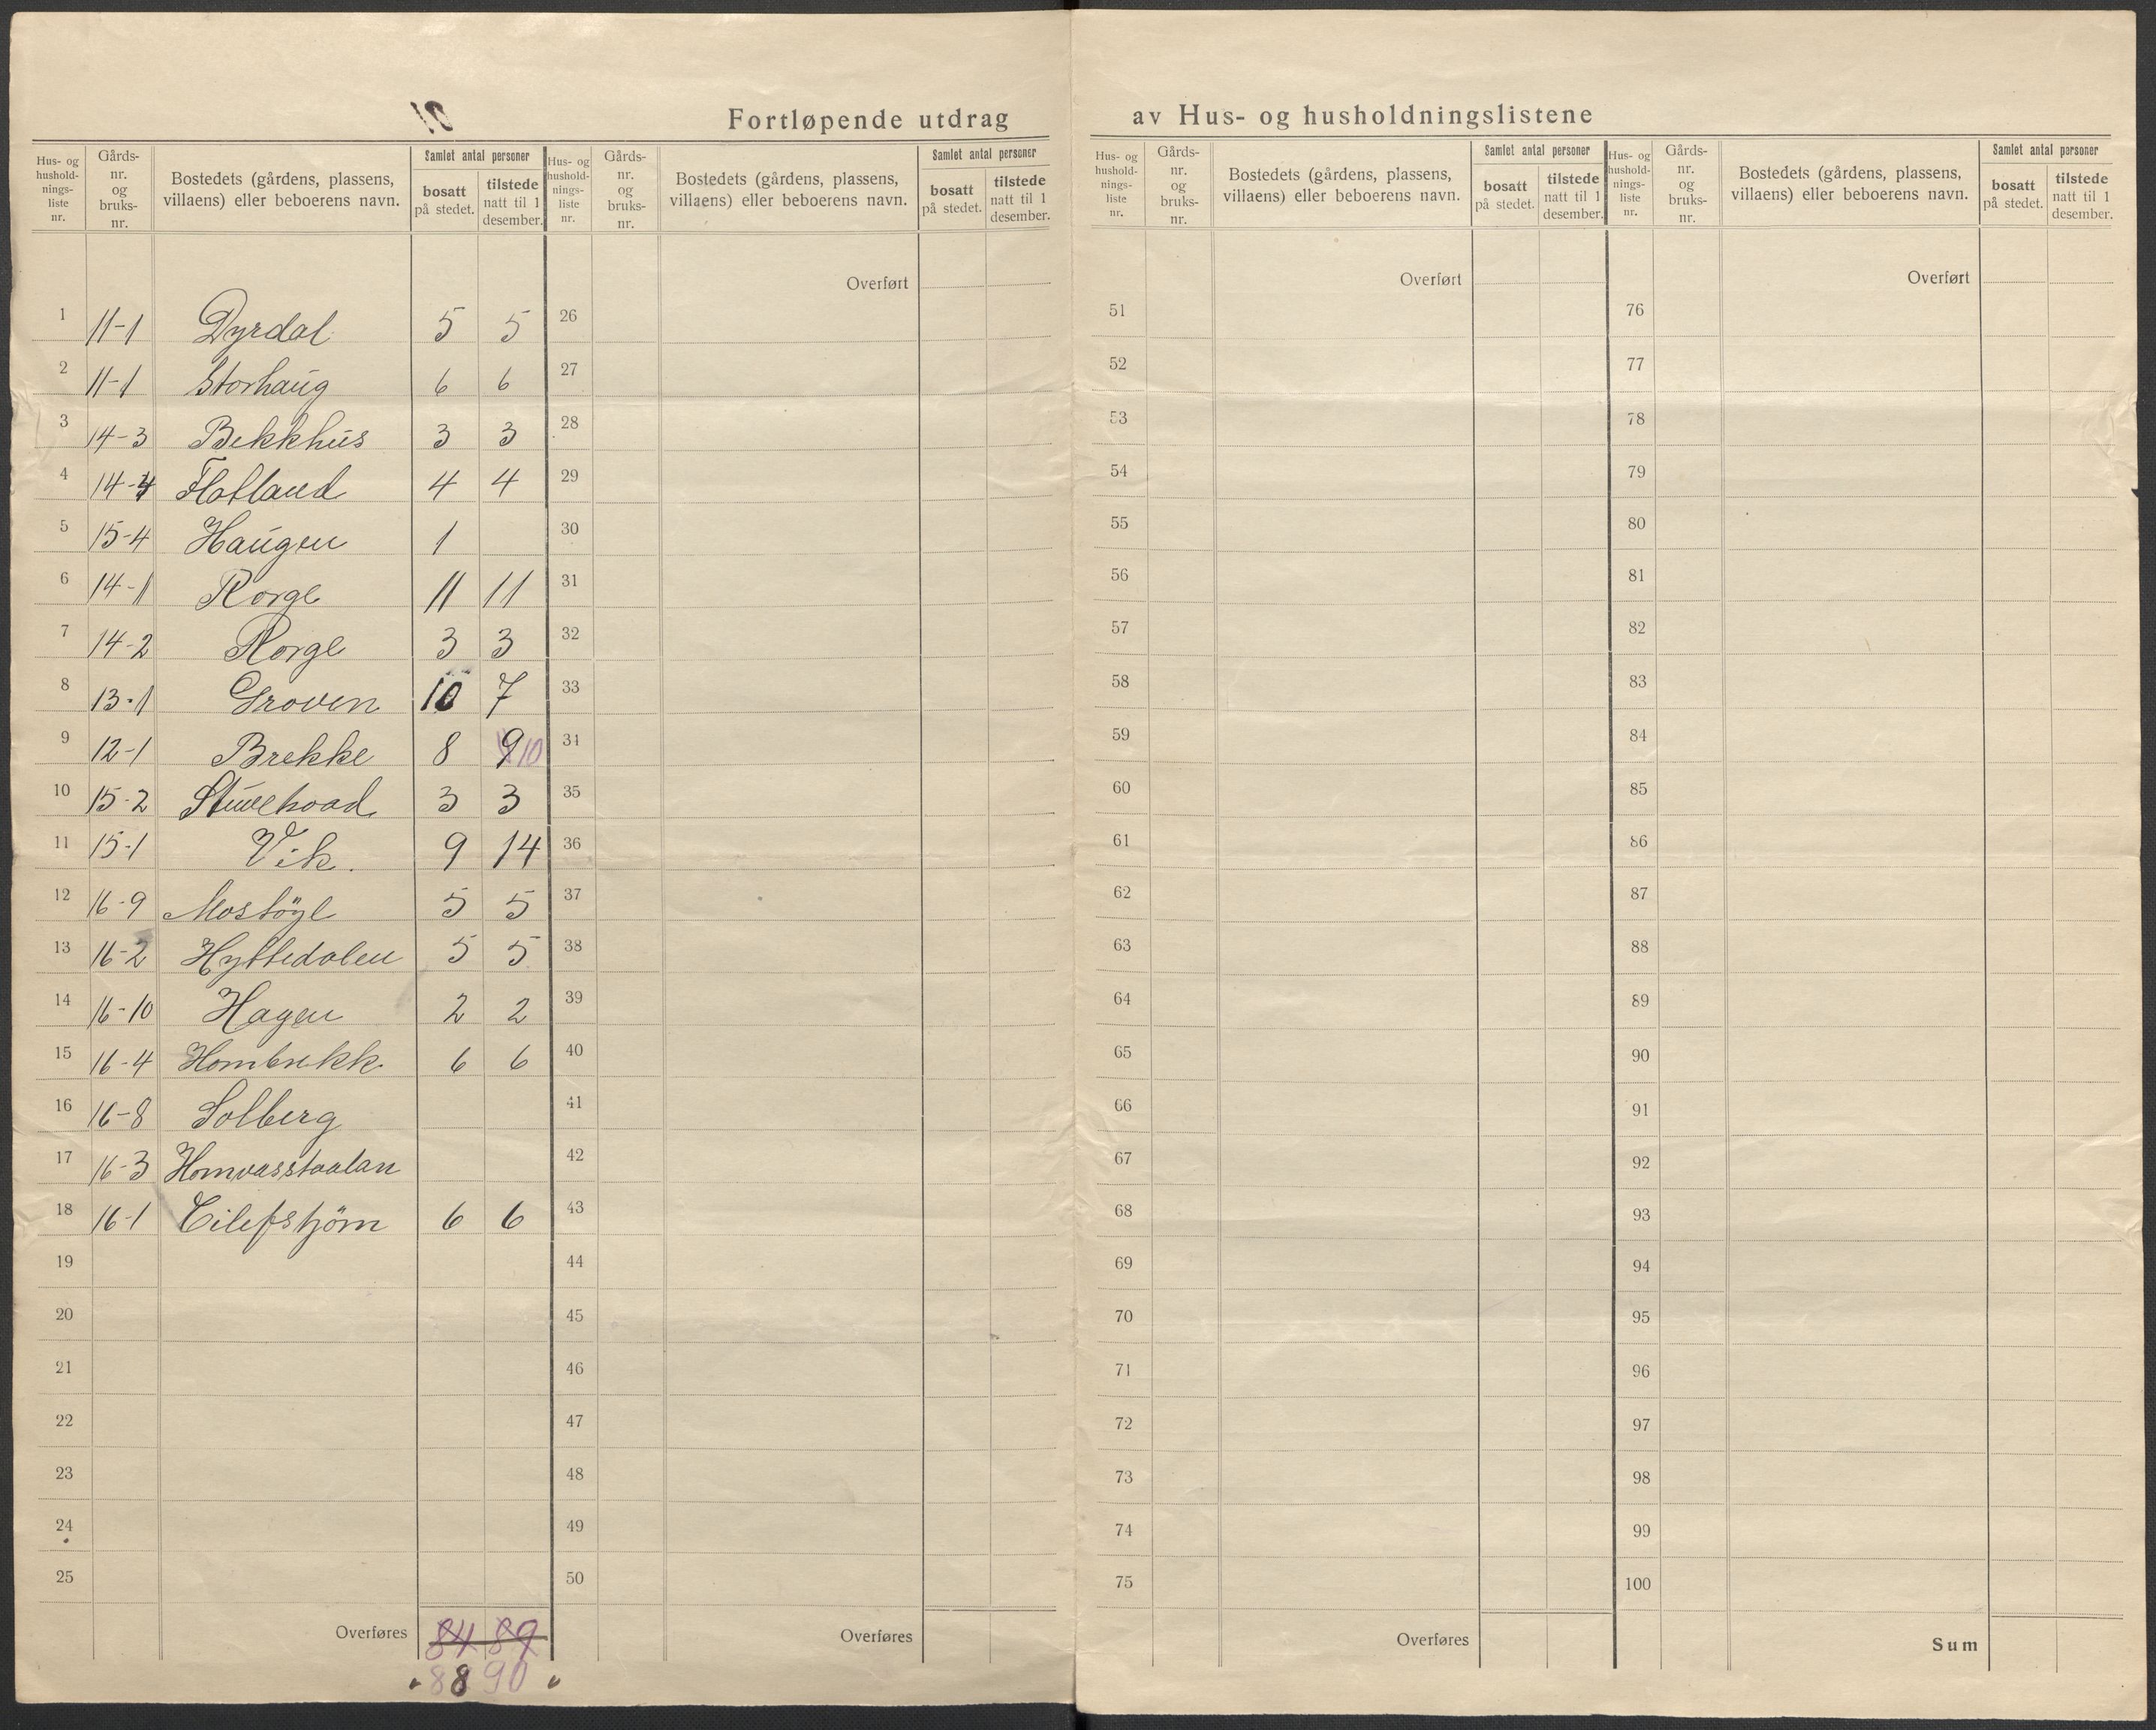 10
Fortløpende utdrag av Hus- og husholdningslistene
Hus- og hushold-nings-liste nr. | Gårds-nr. og bruks-nr. | Bostedets (gårdens, plassens, villaens) eller beboerens navn. | Samlet antal personer | bosatt på stedet. | tilstede natt til 1 desember.
Hus- og hushold-nings-liste nr. | Gårds-nr. og bruks-nr. | Bostedets (gårdens, plassens, villaens) eller beboerens navn. | Samlet antal personer | bosatt på stedet. | tilstede natt til 1 desember.
Hus- og hushold-nings-liste nr. | Gårds-nr. og bruks-nr. | Bostedets (gårdens, plassens, villaens) eller beboerens navn. | Samlet antal personer | bosatt på stedet. | tilstede natt til 1 desember.
Hus- og hushold-nings-liste nr. | Gårds-nr. og bruks-nr. | Bostedets (gårdens, plassens, villaens) eller beboerens navn. | Samlet antal personer | bosatt på stedet. | tilstede natt til 1 desember.
Overført Overført Overført
1 11-1 Dyrdal 5 5 26 51 76
2 11-1 Storhaug 6 6 27 52 77
3 14-3 Bekkhus 3 3 28 53 78
4 14-4 Flatland 4 4 29 54 79
5 15-4 Haugen 1 30 55 80
6 14-1 Rorge 11 11 31 56 81
7 14-2 Rorge 3 3 32 57 82
8 13-1 Groven 10 7 33 58 83
9 12-1 Brekke 8 9 10 34 59 84
10 15-2 3 3 35 60 85
11 15-1 Vik. 9 14 36 61 86
12 16-9 Mostöyl 5 5 37 62 87
13 16-2 Hyttedalen 5 5 38 63 88
14 16-10 Hagen 2 2 39 64 89
15 16-4 Hombrekk 6 6 40 65 90
16 16-8 Solberg 41 66 91
17 16-3 Homvasstaulan 42 67 92
18 16-1 Eilefstjöm 6 6 43 68 93
19 44 69 94
20 45 70 95
21 46 71 96
22 47 72 97
23 48 73 98
24 49 74 99
25 50 75 100
Overføres 84 89 Overføres Overføres Sum
88 90